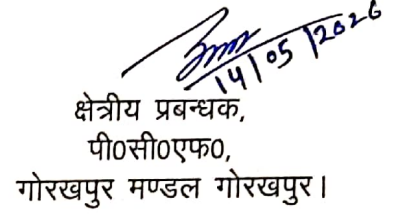 14/05/2026
क्षेत्रीय प्रबन्धक,
पी0सी0एफ0,
गोरखपुर मण्डल गोरखपुर।